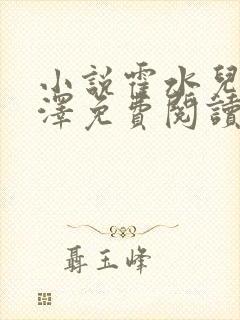 小說霍水兒
澤免費閱讀
聶玉峰